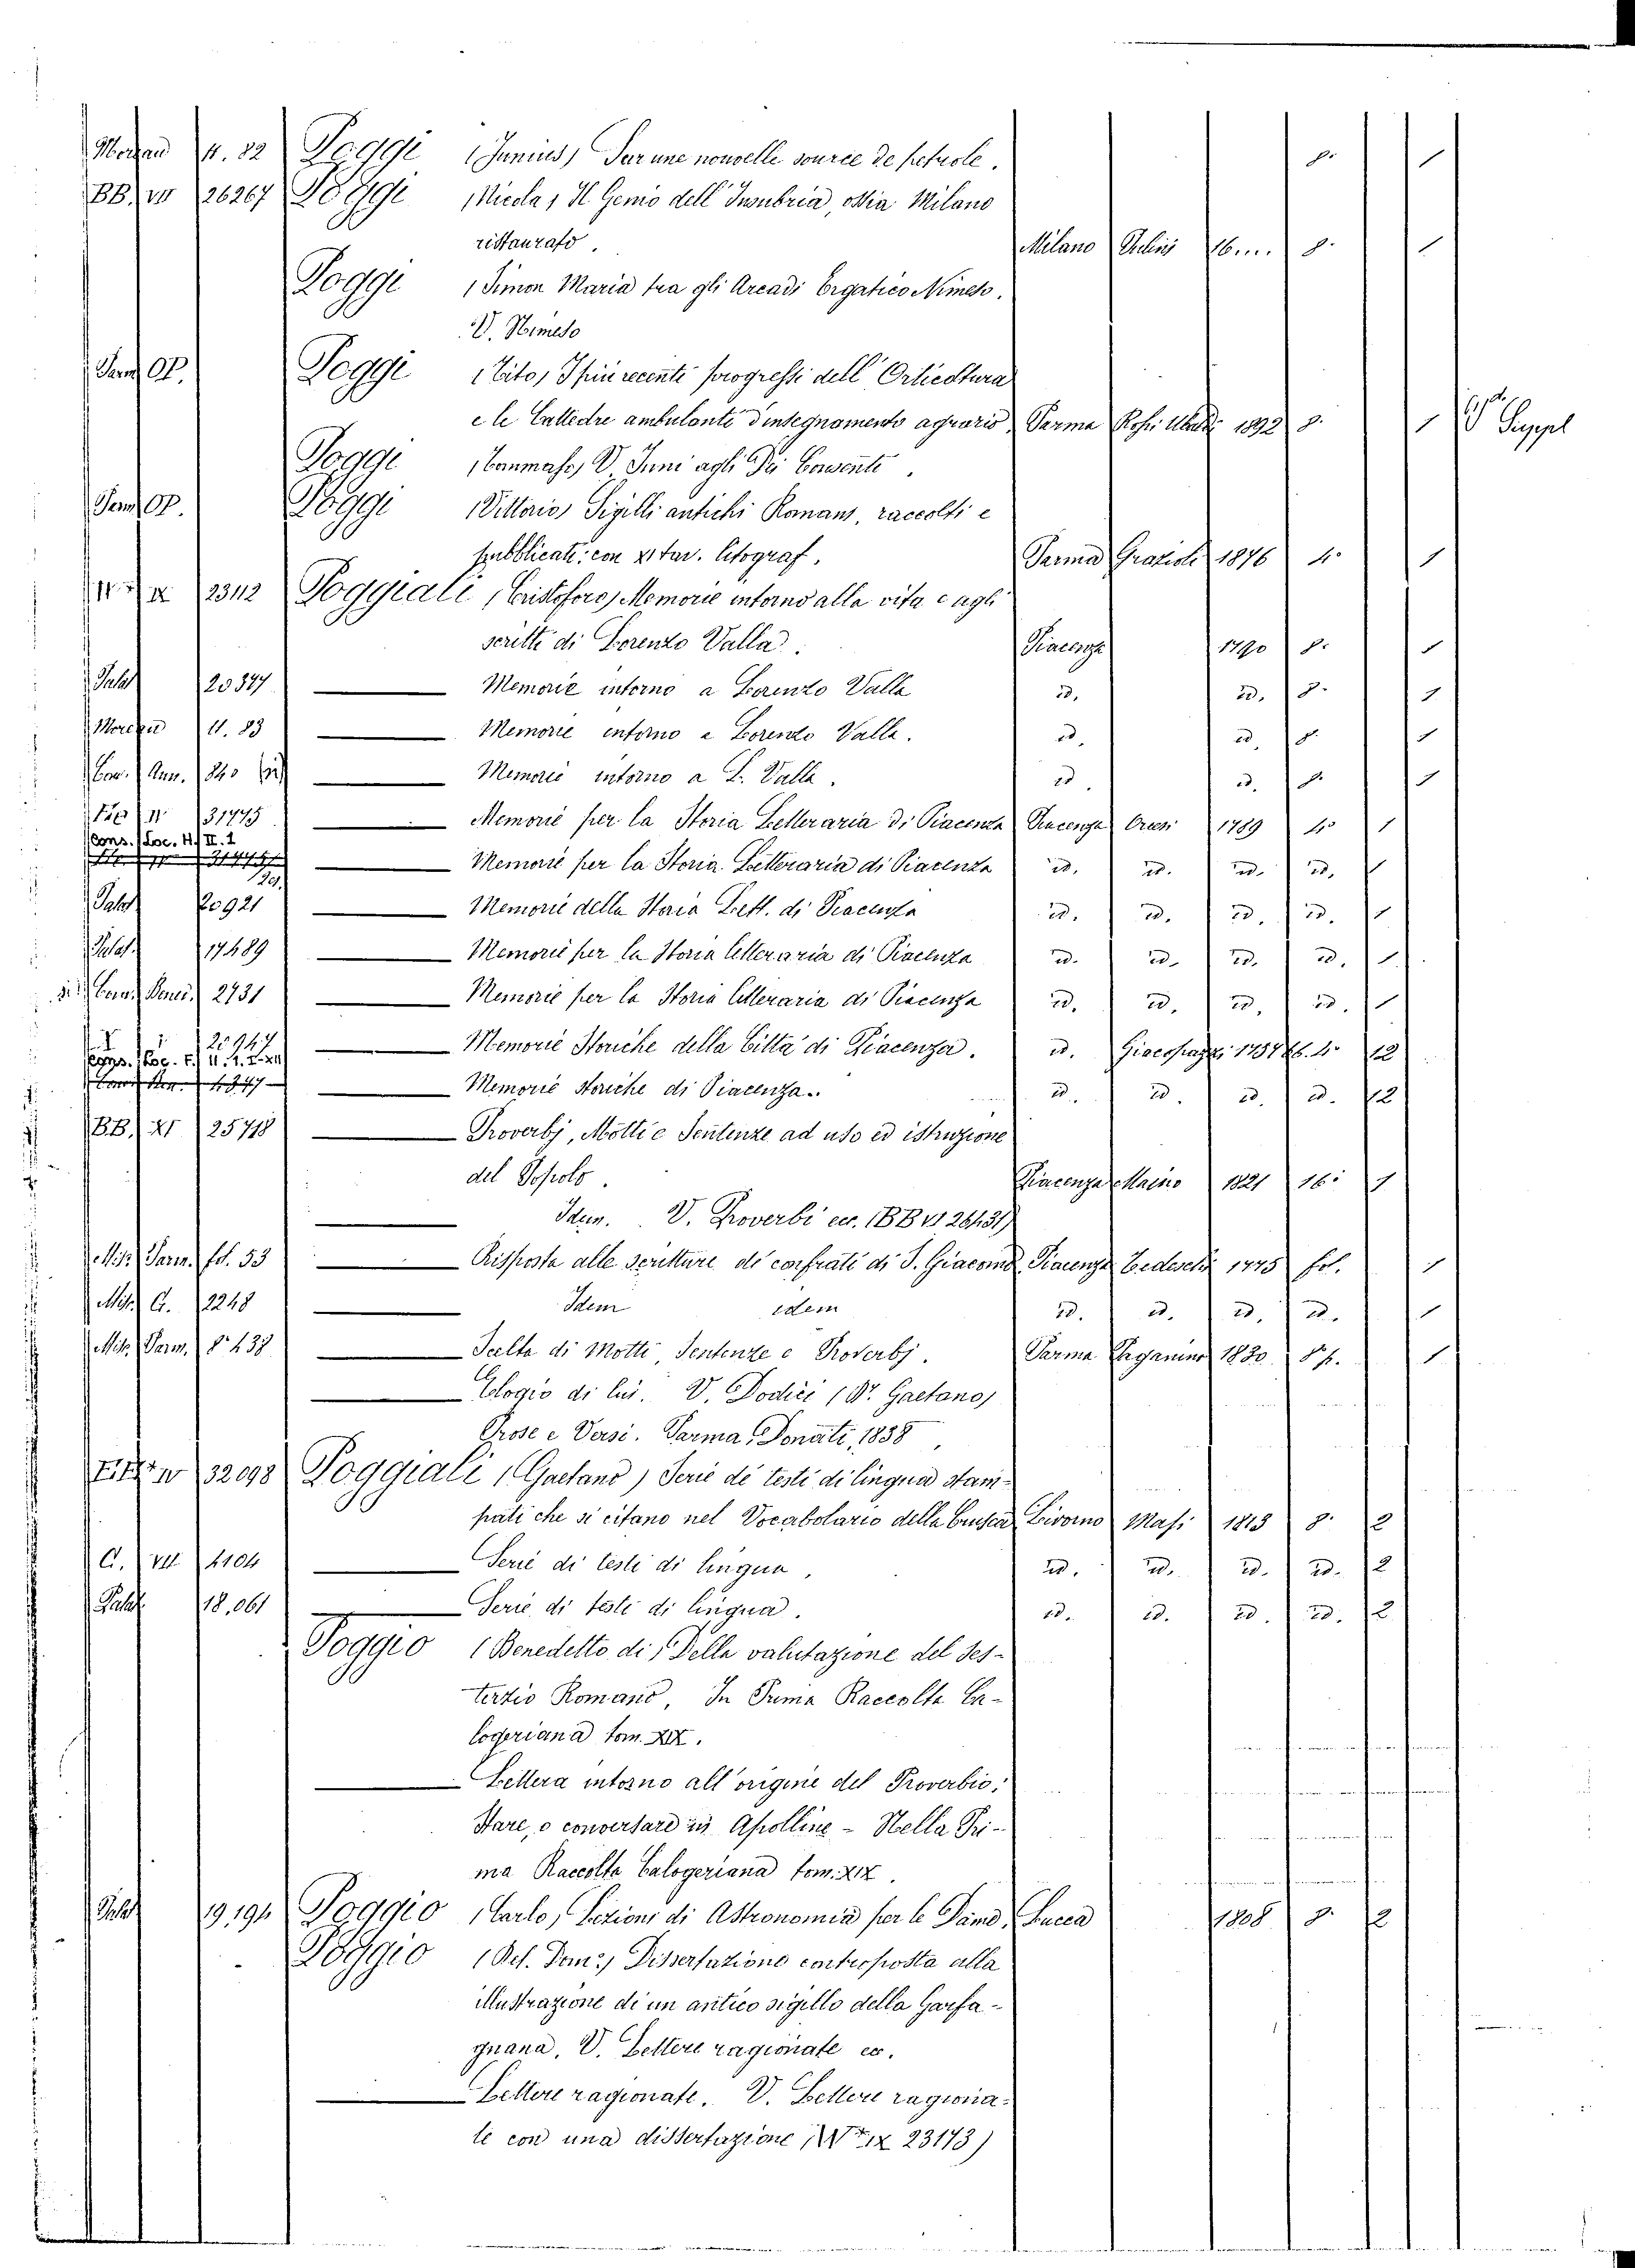 11. 82 Poggi (Junius) Sur une nouvelle source de petrole. 8. 1
BB. VII 26267 Poggi (Nicola) Il Genio dell'Insubria, ossia Milano
ristaurato. Milano 16.... 8. 1
Poggi (Simon Maria tra gli Arcadi Ergatico Nimeso.
V. Nimeso
OP. Poggi (Tito) I più recenti progressi dell'Orticoltura
e le Cattedre ambulanti d'insegnamento agrario. Parma 1892 8. 1 V. Suppl
Poggi (Tommaso) V. Inni agli Dei Consenti.
OP. Poggi (Vittorio) Sigilli antichi Romani, raccolti e
pubblicati: con XI tav. litograf. Parma Grazioli 1876 4. 1
IX 23112 Poggiali (Cristoforo) Memorie intorno alla vita e agli
scritti di Lorenzo Valla. Piacenza 1790 8. 1
Palat 20377 Memorie intorno a Lorenzo Valla id. id. 8. 1
11. 83 Memorie intorno a Lorenzo Valla. id. id. 8. 1
Memorie intorno a L. Valla. id. id. 8. 1
31775 Memorie per la Storia Letteraria di Piacenza Piacenza Orcesi 1789 4. 1
Cons. Loc. H. II. 1
Memorie per la Storia Letteraria di Piacenza id. id. id. id. 1
Palat 20921 Memorie della Storia Lett. di Piacenza id. id. id. id. 1
Palat. 17489 Memorie per la Storia letteraria di Piacenza id. id. id. id. 1
2731 Memorie per la Storia letteraria di Piacenza id. id. id. id. 1
Memorie Storiche della Città di Piacenza. id. Giacopazzi 4. 12
Memorie storiche di Piacenza. id. id. id. id. 12
BB. XI 25718 Proverbj, Motti e Sentenze ad uso ed istruzione
del Popolo. Piacenza Maino 1821 16. 1
Idem. V. Proverbi ec. (BB VI 28431)
Misc. Parm. fol. 53 Risposta alle scritture de' confrati di S. Giacomo Piacenza Tedeschi 1775 fol. 1
Misc. G. 2248 Idem idem id. id. id. id. 1
Misc. Parm. 8° 438 Scelta di Motti, Sentenze e Proverbj. Parma Paganino 1830 8. p. 1
Elogio di lui. V. Dodici (Dr. Gaetano)
Prose e Versi. Parma, Donati, 1838
32098 Poggiali (Gaetano) Serie de' testi di lingua stam-
pati che si citano nel Vocabolario della Crusca Livorno Masi 1813 8. 2
G. VII 4104 Serie di testi di lingua. id. id. id. id. 2
Palat 18,061 Serie di testi di lingua. id. id. id. id. 2
Poggio (Benedetto di) Della valutazione del Ses-
terzio Romano, In Prima Raccolta Ca-
logeriana tom. XIX.
Lettera intorno all'origine del Proverbio:
Stare, o conversare in Apolline - Nella Pri-
ma Raccolta Calogeriana tom. XIX.
Palat 19,194 Poggio (Carlo) Lezioni di Astronomia per le Dame Lucca 1808 8. 2
Poggio (Dom.) Dissertazione controposta alla
illustrazione di un antico sigillo della Garfa-
gnana. V. Lettere ragionate ec.
Lettere ragionate. V. Lettere ragiona-
te con una dissertazione IX 23173)